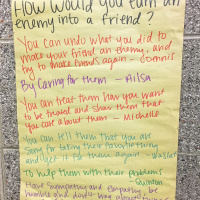 How would you turn an
enemy into a friend?
You can undo what you did to
make your friend an enemy, and
try to make friends again - Dominis
By Caring for them - Ailsa
You can treat them how you want
to be treated and show them that
you care about them - Michelle
You can tell them that you are
Sorry for taking their favorite thing
and get it for them again -
To help them with their problems
- Quinton
Have sympathy and empathy, be
humble and